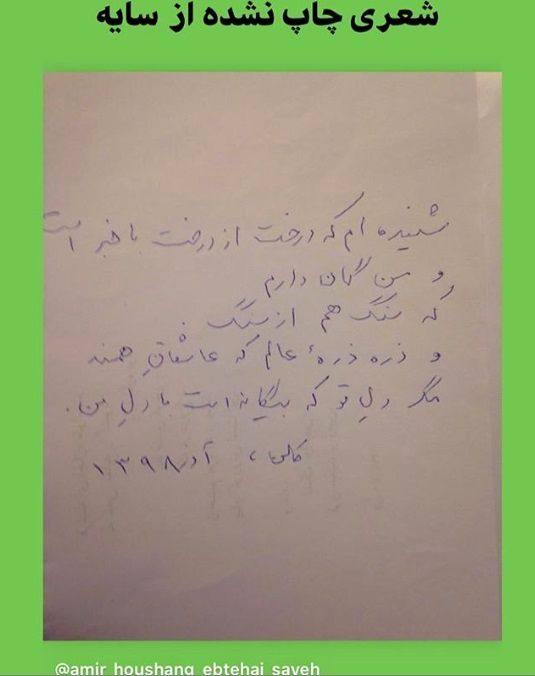 شعری چاپ نشده از سایه
شنیده ام که درخت از درخت با خبر است
و من گمان دارم
که سنگ هم از سنگ
و ذره ذرهٔ عالم که عاشقانِ همند
مگر دلِ تو که بیگانه است با دلِ من.
کلن، آذر ۱۳۹۸
@amir_houshang_ebtehaj_sayeh